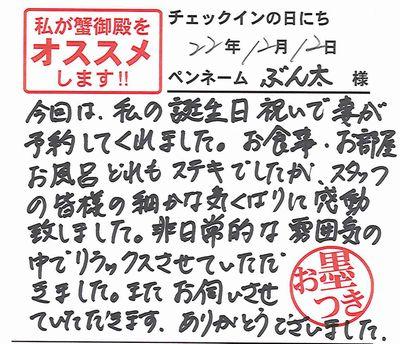 私が蟹御殿を
オススメ
します!!
チェックインの日にち
22年12月12日
ペンネーム ぶん太 様
今回は、私の誕生日祝いで妻が
予約してくれました。お食事・お部屋
お風呂どれもステキでしたが、スタッフ
の皆様の細かな気くばりに感動
致しました。非日常的な雰囲気の
中でリラックスさせていただ
きました。またお伺いさせ
ていただきます。ありがとうございました。
お墨つき